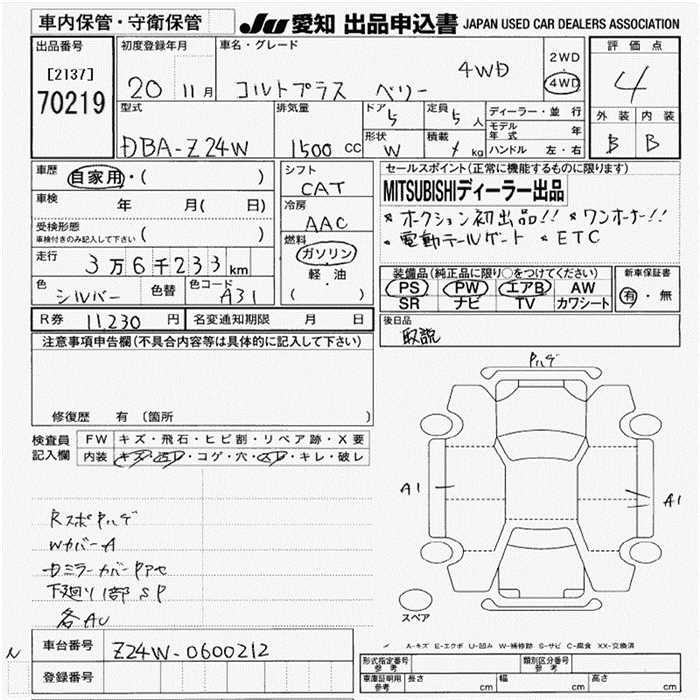 車内保管・守衛保管 JU 愛知 出品申込書 JAPAN USED CAR DEALERS ASSOCIATION
出品番号 [2137] 70219
初度登録年月 20 11月
車名・グレード コルトプラス ベリー 4WD
2WD ・ 4WD
評価点 4
外装 B 内装 B
型式 DBA-Z24W
排気量 1500 CC
ドア 5 定員 5人
形状 W 積載 kg
ディーラー・並行
モデル年式 年
ハンドル 左・右
車歴 自家用・( )
車検 年 月( 日)
受検形態 車検付きのみ記入して下さい ( )
走行 3万6千233km
色 シルバー 色替 色コード A31
シフト CAT
冷房 AAC
燃料 ガソリン 軽油 ( )
セールスポイント(正常に機能するものに限ります)
MITSUBISHIディーラー出品
*オークション初出品!! *ワンオーナー!!
*電動テールゲート *ETC
装備品(純正品に限り○をつけてください)
PS PW エアB AW
SR ナビ TV カワシート
新車保証書 有・無
R券 11,230円 名変通知期限 月 日
後日品 取説
注意事項申告欄(不具合内容等は具体的に記入して下さい)
修復歴 有 〔箇所 〕
検査員記入欄
FW キズ・飛石・ヒビ割・リペア跡・X要
内装 キズ・汚レ・コゲ・穴・スレ・キレ・破レ
Rスポハルゲ
WカバーA
下廻り1部SP
各AU
ハルゲ
A1
A1
スペア
A-キズ E-エクボ U-凹み W-補修跡 S-サビ C-腐食 XX-交換済
N
車台番号 Z24W-0600212
登録番号
形式指定番号 参考 類別区分番号 参考
車庫証明用 参考 長さ cm 幅 cm 高さ cm